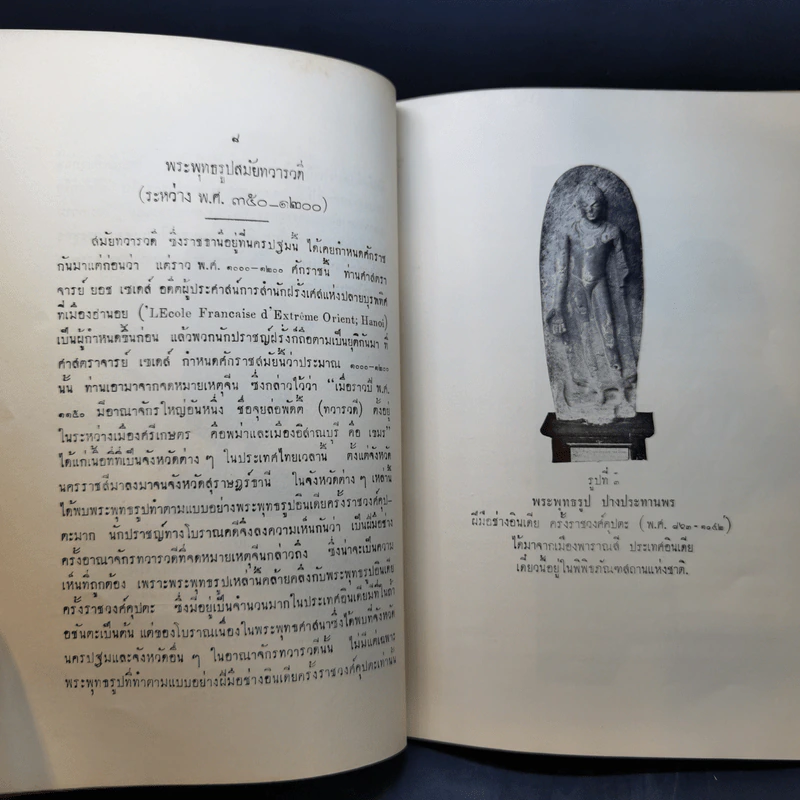 ๘
พระพุทธรูปสมัยทวารวดี
(ระหว่าง พ.ศ. ๓๕๐–๑๒๐๐)
สมัยทวารวดี ซึ่งราชธานีอยู่ที่นครปฐมนี้ ได้เคยกำหนดศักราช
กันมาแต่ก่อนว่า แต่ราว พ.ศ. ๑๐๐๐–๑๒๐๐ ศักราชนี้ ท่านศาสตรา
จารย์ ยอช เซเดส์ อดีตผู้ประศาสน์การสำนักฝรั่งเศสแห่งปลายบุรพทิศ
ที่เมืองฮานอย ('LEcole Francaise d'Extrême Orient; Hanoi)
เป็นผู้กำหนดขึ้นก่อน แล้วพวกนักปราชญ์ฝรั่งก็ถือตามเป็นยุติกันมา ที่
ศาสตราจารย์ เซเดส์ กำหนดศักราชสมัยนี้ว่าประมาณ ๑๐๐๐–๑๒๐๐
นั้น ท่านเอามาจากจดหมายเหตุจีน ซึ่งกล่าวไว้ว่า "เมื่อราวปี พ.ศ.
๑๑๕๐ มีอาณาจักรใหญ่อันหนึ่ง ชื่อจุยล่อพัดตี้ (ทวารวดี) ตั้งอยู่
ในระหว่างเมืองศรีเกษตร คือพม่าและเมืองอีสาณบุรี คือ เขมร"
ได้แก่เนื้อที่ที่เป็นจังหวัดต่าง ๆ ในประเทศไทยเวลานี้ ตั้งแต่จังหวัด
นครราชสีมาลงมาจนจังหวัดสุราษฎร์ธานี ในจังหวัดต่าง ๆ เหล่านี้
ได้พบพระพุทธรูปทำตามแบบอย่างพระพุทธรูปอินเดียครั้งราชวงศ์คุป-
ตะมาก นักปราชญ์ทางโบราณคดีจึงลงความเห็นกันว่า เป็นฝีมือช่าง
ครั้งอาณาจักรทวารวดีที่จดหมายเหตุจีนกล่าวถึง ซึ่งน่าจะเป็นความ
เห็นที่ถูกต้อง เพราะพระพุทธรูปเหล่านี้คล้ายคลึงกับพระพุทธรูปอินเดีย
ครั้งราชวงศ์คุปตะ ซึ่งมีอยู่เป็นจำนวนมากในประเทศอินเดียมีที่ในถ้ำ
อชันตะเป็นต้น แต่ของโบราณเนื่องในพระพุทธศาสนาซึ่งได้พบที่จังหวัด
นครปฐมและจังหวัดอื่น ๆ ในอาณาจักรทวารวดีนั้น ไม่มีแต่เฉพาะ
พระพุทธรูปที่ทำตามแบบอย่างฝีมือช่างอินเดียครั้งราชวงศ์คุปตะเท่านั้น
รูปที่ ๑
พระพุทธรูป ปางประทานพร
ฝีมือช่างอินเดีย ครั้งราชวงศ์คุปตะ (พ.ศ. ๘๖๓–๑๑๔๒)
ได้มาจากเมืองพาราณสี ประเทศอินเดีย
เดี๋ยวนี้อยู่ในพิพิธภัณฑสถานแห่งชาติ.